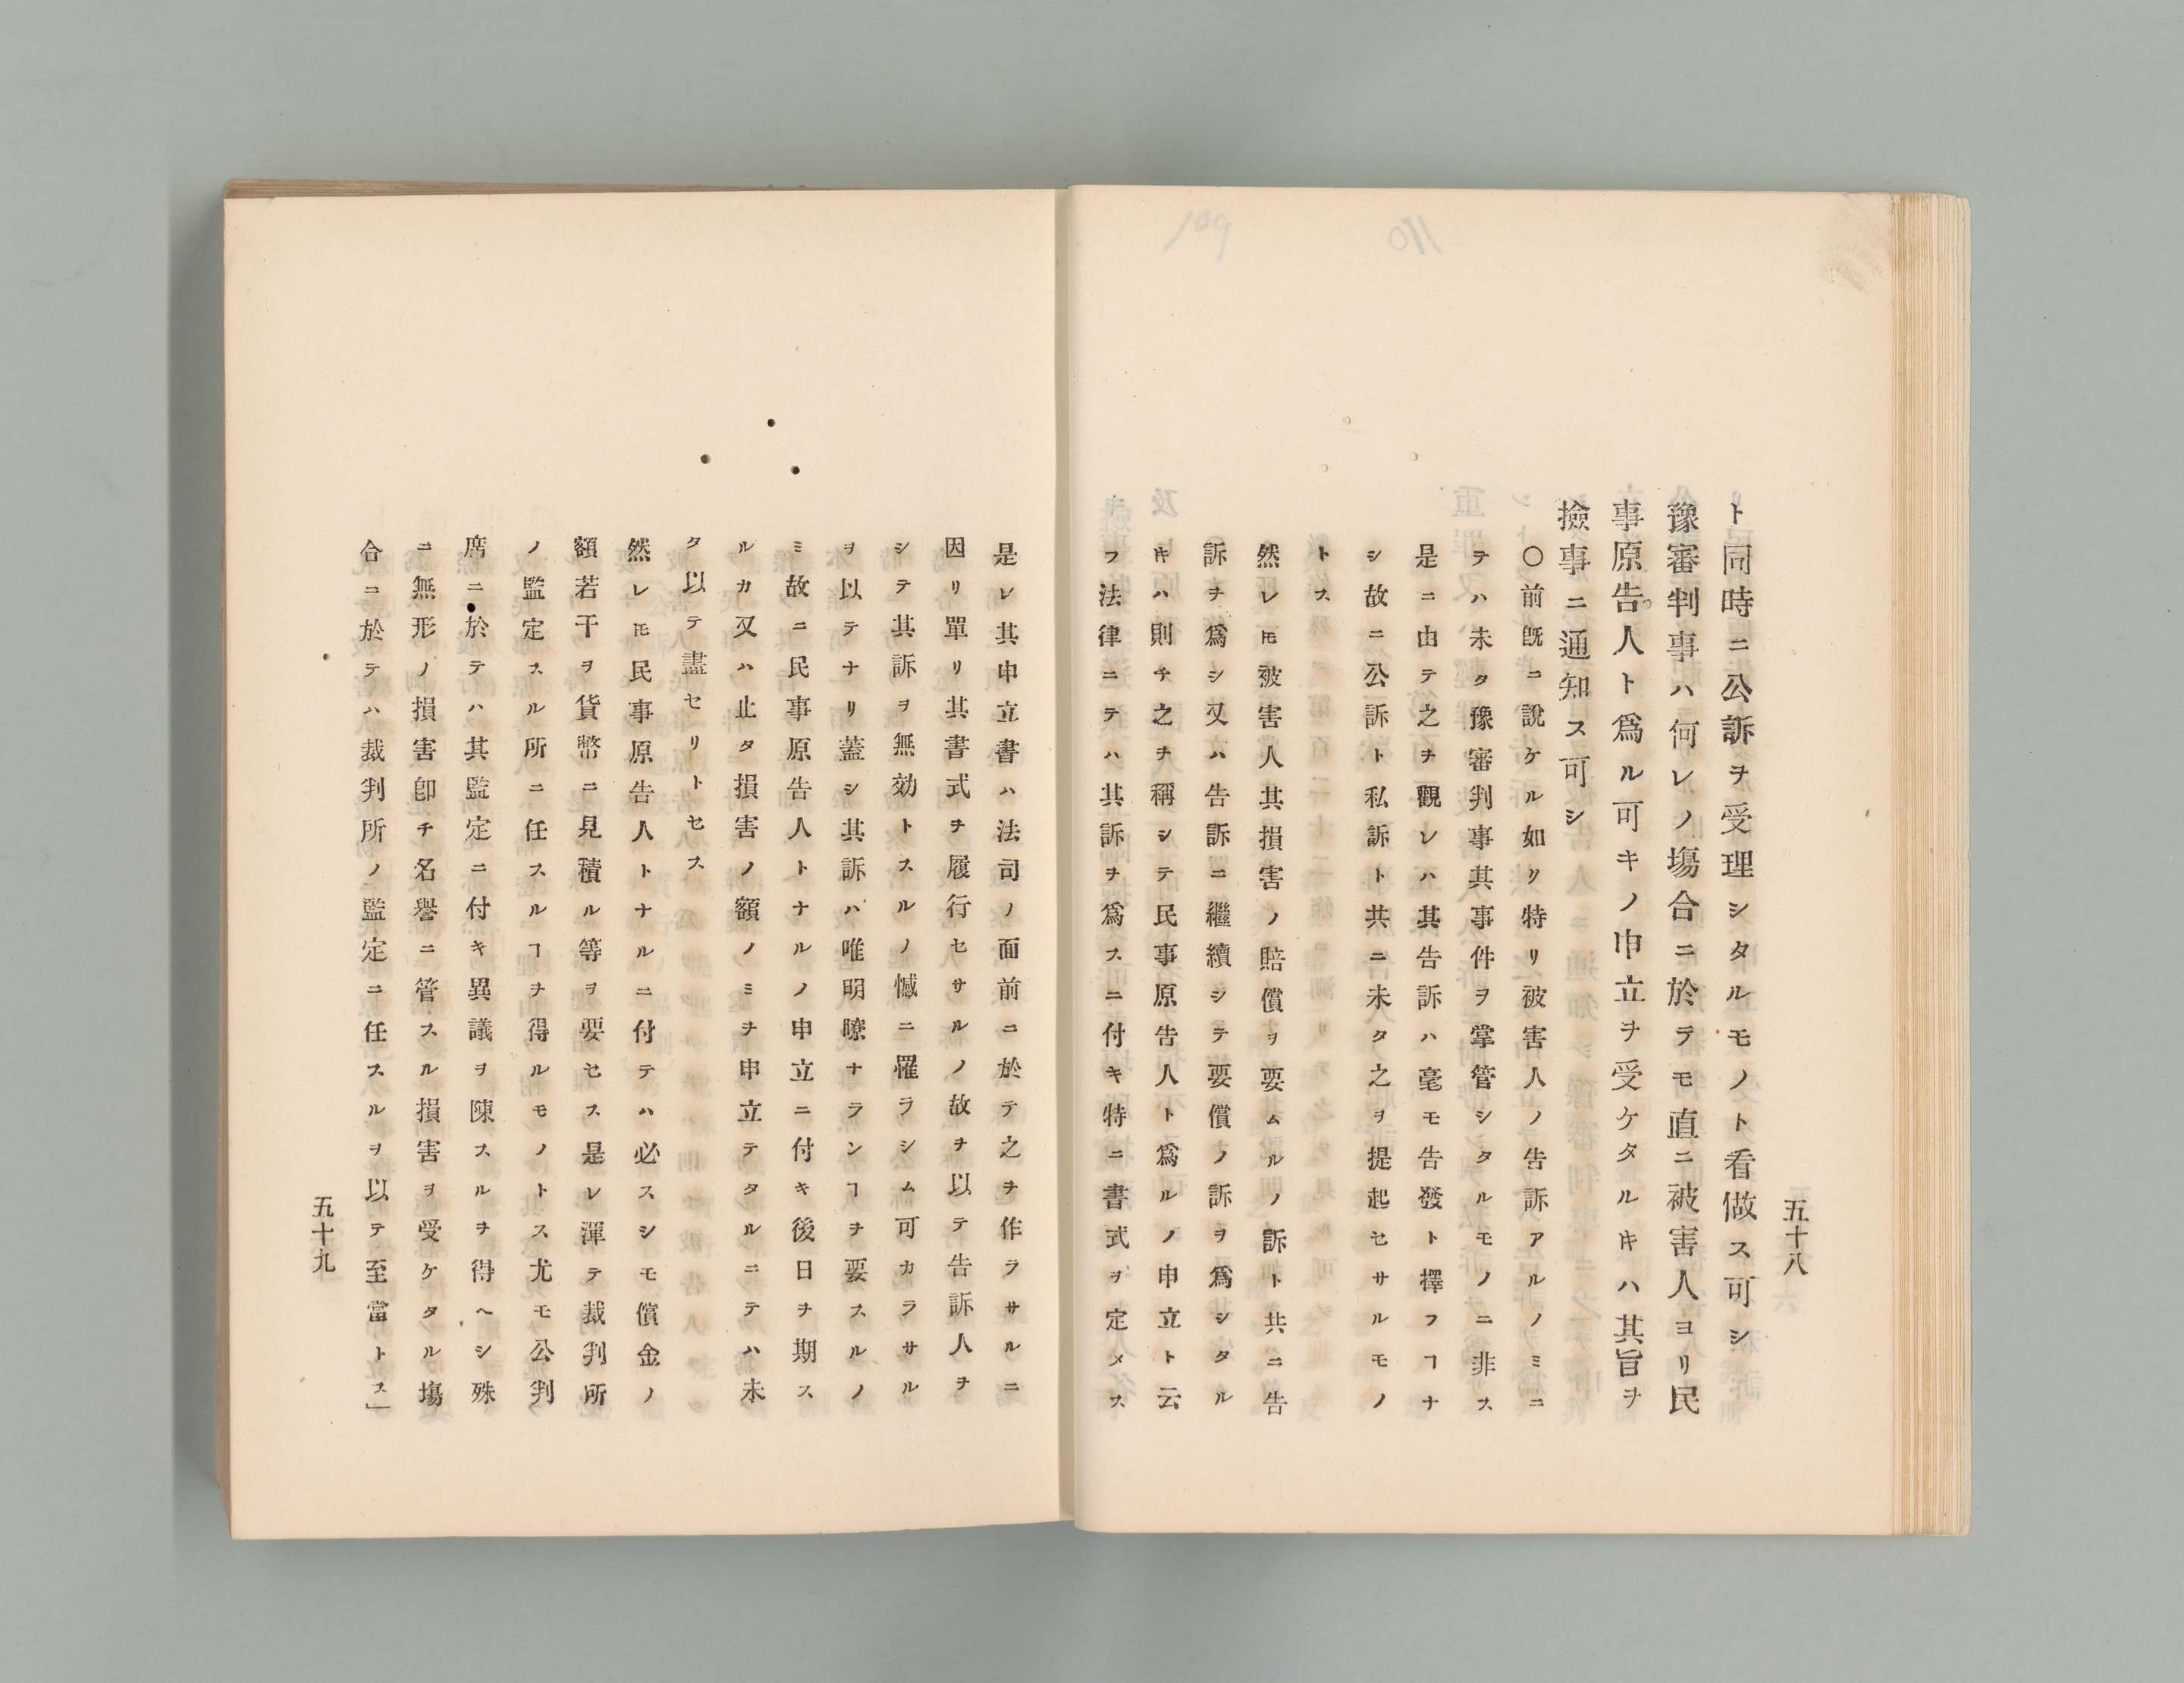 五十八
ト同時ニ公訴ヲ受理シタルモノト看做ス可シ
豫審判事ハ何レノ塲合ニ於テモ直ニ被害人ヨリ民
事原告人ト爲ル可キノ申立ヲ受ケタルキハ其旨ヲ
撿事ニ通知ス可シ
〇前既ニ說ケル如ク特リ被害人ノ告訴アルノミニ
テハ未タ豫審判事其事件ヲ掌管シタルモノニ非ス
是ニ由テ之ヲ觀レハ其告訴ハ毫モ告發ト擇フヿナ
シ故ニ公訴ト私訴ト共ニ未タ之ヲ提起セサルモノ
トス
然レ𪜈被害人其損害ノ賠償ヲ要ムルノ訴ト共ニ告
訴ヲ爲シ又ハ告訴ニ繼續シテ要償ノ訴ヲ爲シタル
キハ則チ之ヲ稱シテ民事原告人ト爲ルノ申立ト云
フ法律ニテハ其訴ヲ爲スニ付キ特ニ書式ヲ定メス
是レ其申立書ハ法司ノ面前ニ於テ之ヲ作ラサルニ
因リ單リ其書式ヲ履行セサルノ故ヲ以テ告訴人ヲ
シテ其訴ヲ無効トスルノ憾ニ罹ラシム可カラサル
ヲ以テナリ蓋シ其訴ハ唯明瞭ナランヿヲ要スルノ
ミ故ニ民事原告人トナルノ申立ニ付キ後日ヲ期ス
ルカ又ハ止タ損害ノ額ノミヲ申立テタルニテハ未
タ以テ盡セリトセス
然レ𪜈民事原告人トナルニ付テハ必スシモ償金ノ
額若干ヲ貨幣ニ見積ル等ヲ要セス是レ渾テ裁判所
ノ監定スル所ニ任スルヿヲ得ルモノトス尤モ公判
席ニ於テハ其監定ニ付キ異議ヲ陳スルヲ得ヘシ殊
ニ無形ノ損害卽チ名譽ニ管スル損害ヲ受ケタル塲
合ニ於テハ裁判所ノ監定ニ任スルヲ以テ至當トス」
五十九
109